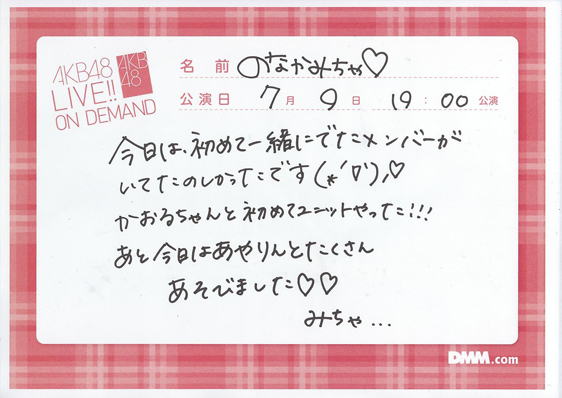 AKB48
LIVE!!
ON DEMAND
AKB
48
名前 のなかみちゃ♡
公演日 7月9日 19:00公演
今日は、初めて一緒にでたメンバーが
いてたのしかったです(*´▽`)♪♡
かおるちゃんと初めてユニットやった!!!
あと今日はあやりんとたくさん
あそびました♡♡
みちゃ...
DMM.com